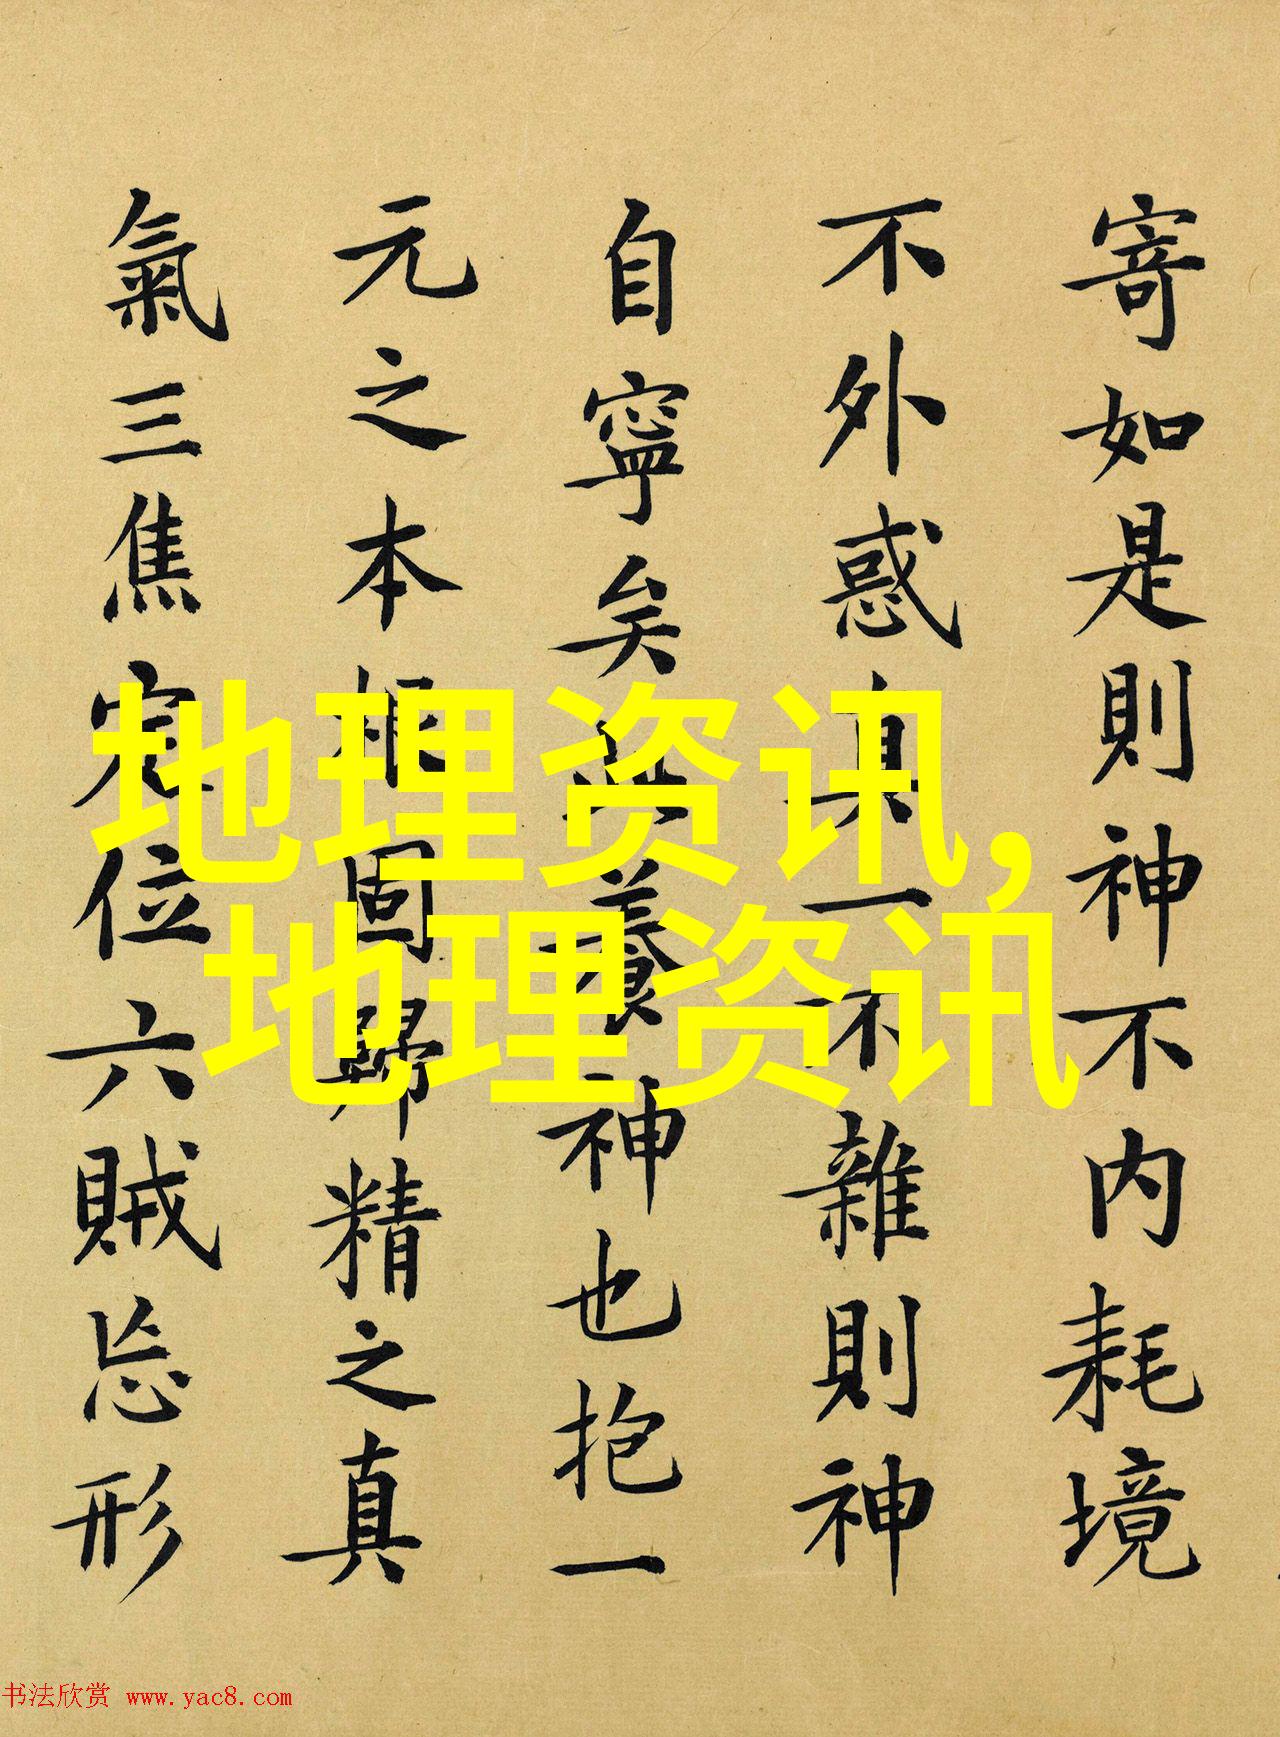 寄如是則神不内耗境
不外惑真一不雜則神
自寧矣此養神也抱一
元之本根固歸精之真
氣三焦定位六賊忘形
地理资讯,
地理资讯
书法欣赏 www.yac8.com